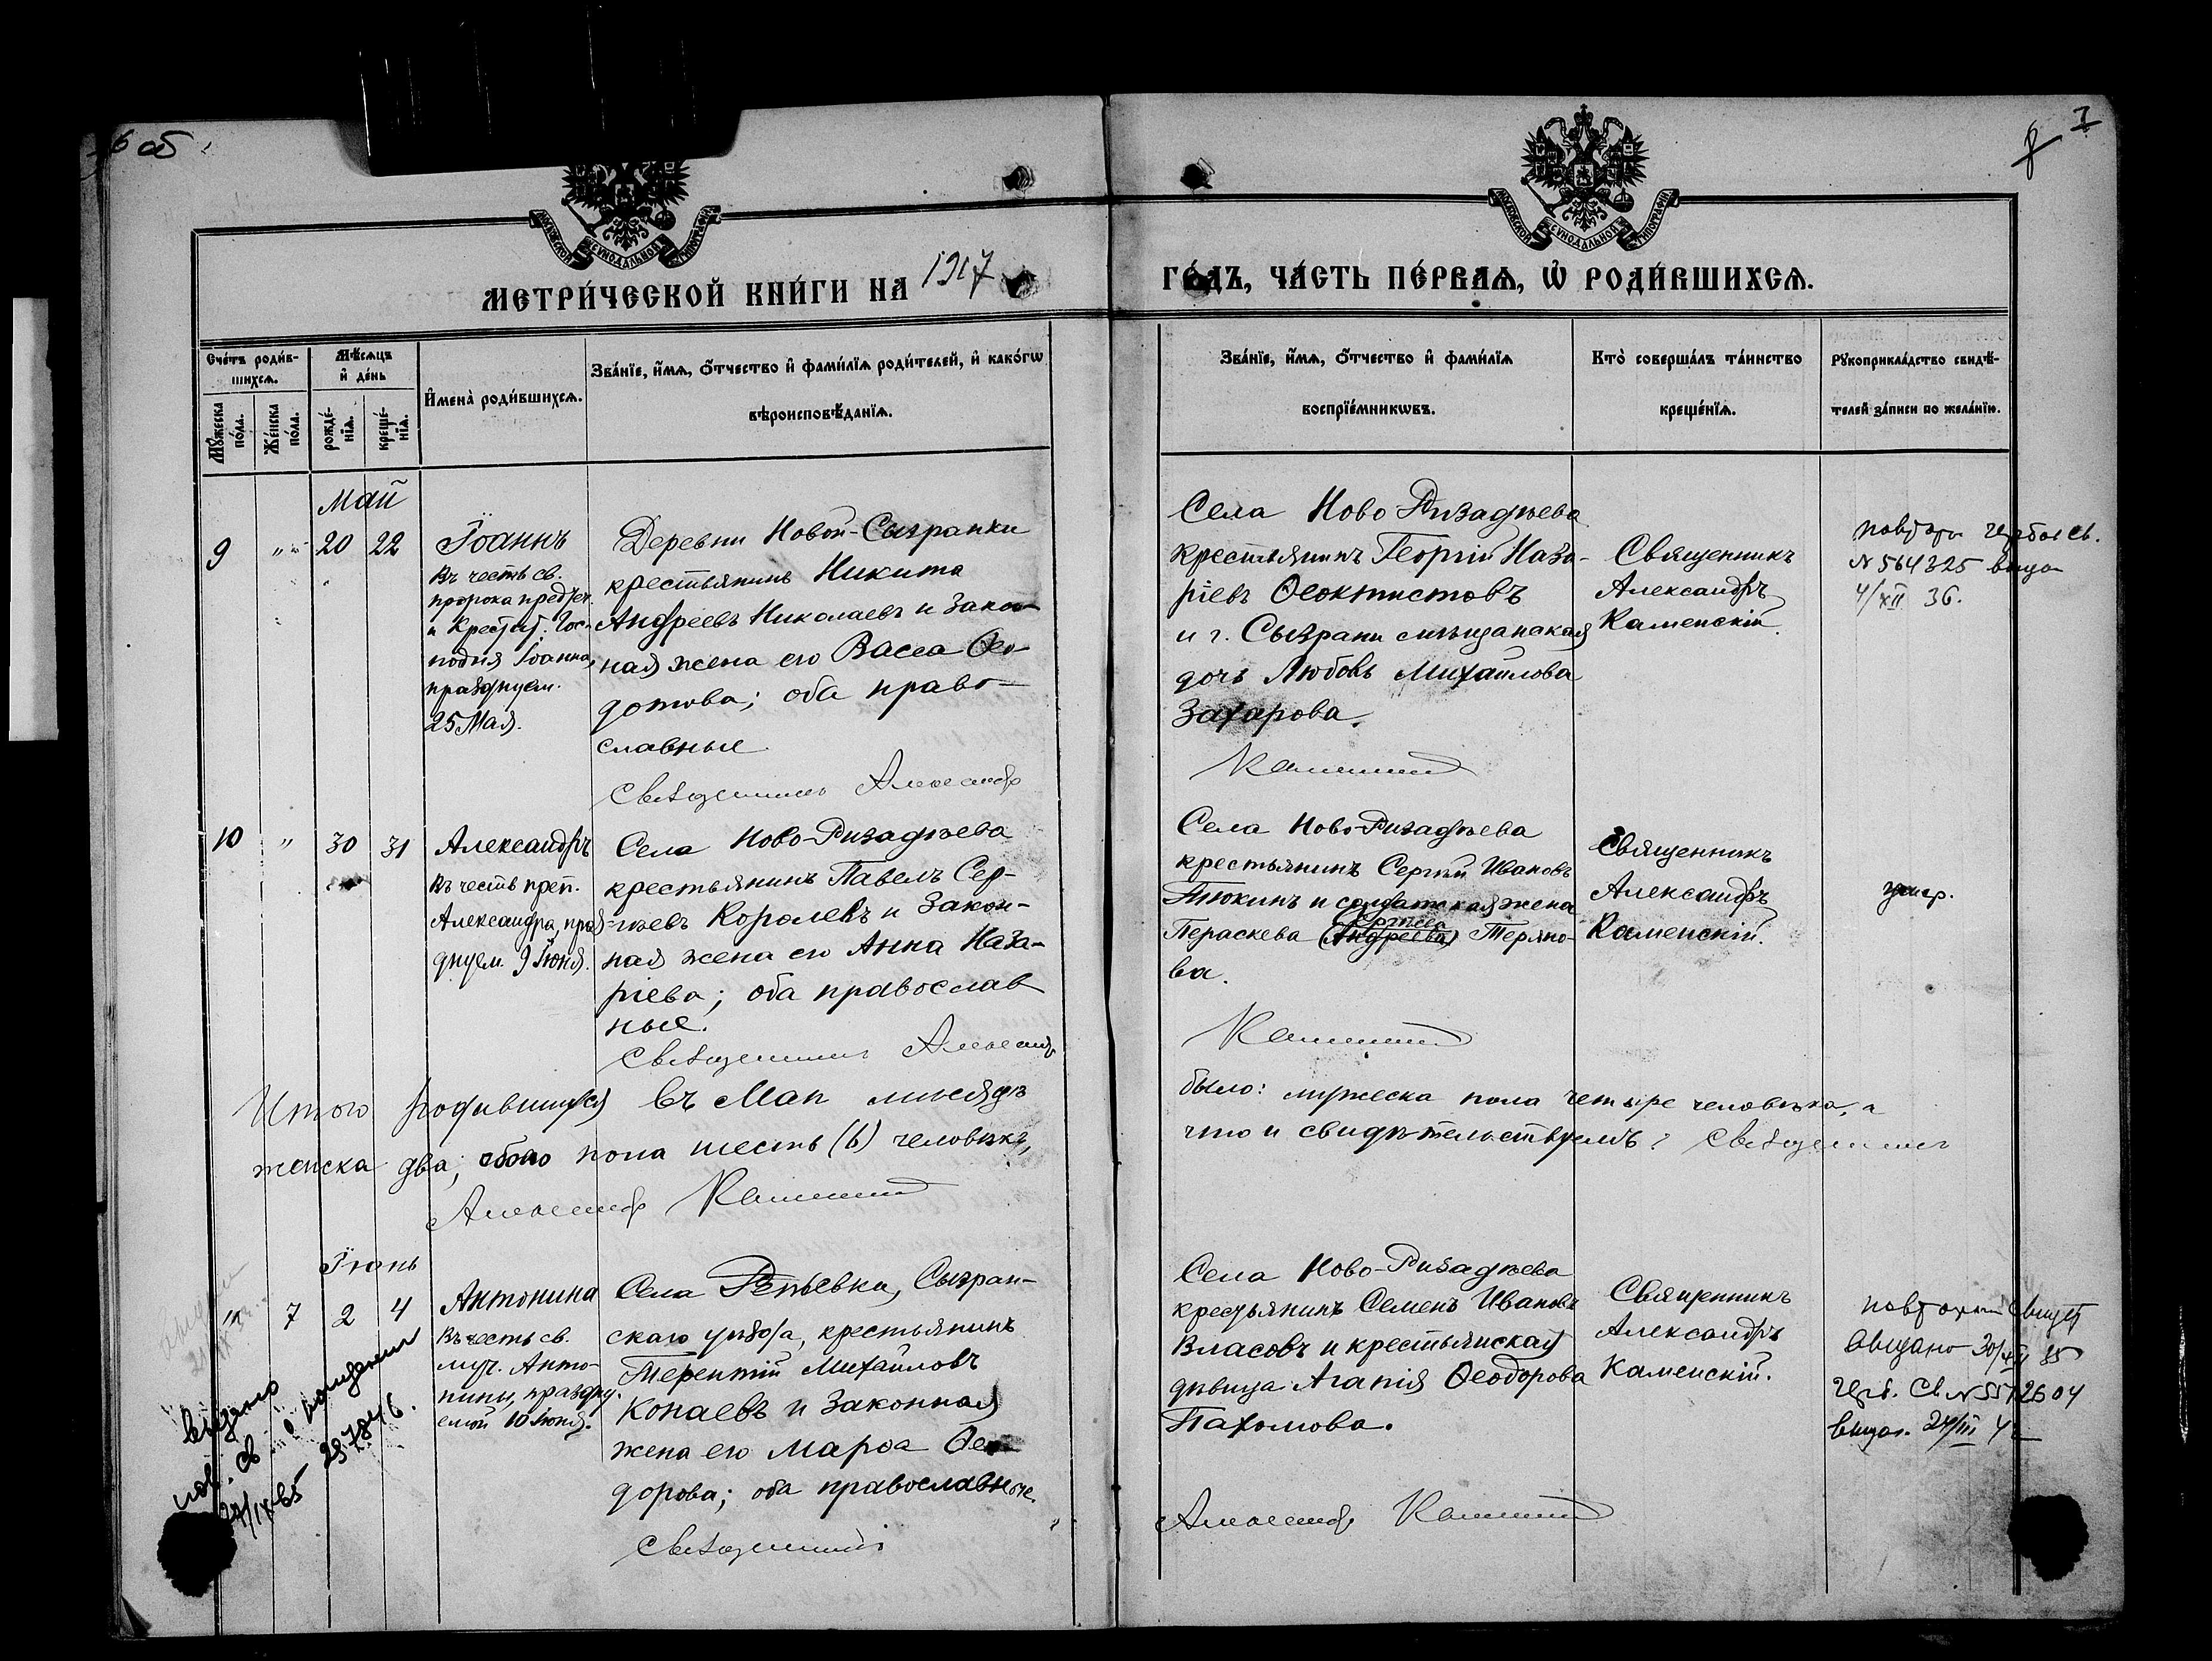 6 об
7
МОСКОВСКОЙ СУНОДАЛЬНОЙ ТИПОГРАФІИ
МОСКОВСКОЙ СУНОДАЛЬНОЙ ТИПОГРАФІИ
МЕТРИ́ЧЕСКОЙ КНИ́ГИ НА 1917
ГО́ДЪ, ЧА́СТЬ ПЕ́РВАѦ, Ѡ҆ РОДИ́ВШИХСѦ.
Сче́тъ роди́в-
шихсѧ.
Мѣ́сѧцъ
и҆ де́нь
Мꙋ́жеска
по́ла.
Же́нска
по́ла.
рожде́-
нїѧ.
креще́-
нїѧ.
И҆мена̀ роди́вшихсѧ.
Зва́нїе, и҆́мѧ, ѻ҆́тчество и҆ фами́лїѧ роди́телей, и҆ како́гѡ
вѣроисповѣ́данїѧ.
Зва́нїе, и҆́мѧ, ѻ҆́тчество и҆ фами́лїѧ
воспрїе́мникѡвъ.
Кто̀ соверша́лъ та́инство
креще́нїѧ.
Рꙋкоприкла́дство свидѣ́-
телей за́писи по жела́нїю.
Май
9 " 20 22
Іоаннъ
Въ честь св.
пророка предтеч.
и Крестит. Гос-
подня Іоанна,
празднуем.
25 Мая.
Деревни Новой-Сызранки
крестьянинъ Никита
Андреевъ Николаевъ и закон-
ная жена его Васса Ѳео-
дотова; оба право-
славные
Священникъ Александр
Села Ново Ризадѣева
крестьянинъ Георгій Наза-
ріевъ Ѳеоктистовъ
и г. Сызрани мѣщанская
дочь Любовь Михаилова
Захарова.
Каменскій
Священникъ
Александръ
Каменскій.
№ 564325
4/XII 36.
10 " 30 31
Александръ
Въ честь преп.
Александра, праз-
днуем. 9 Іюня.
Села Ново-Ризадѣева
крестьянинъ Павелъ Сер-
гѣевъ Королевъ и закон-
ная жена его Анна Наза-
ріева; оба православ
ные.
Священникъ Александр
Села Ново-Ризадѣева
крестьянинъ Сергѣй Ивановъ
Тюкинъ и солдатская жена
Пераскева (Андреева) Теряно-
ва.
Каменскій
Священникъ
Александръ
Каменскій.
умер.
Итого родившихся въ Маѣ мѣсяцѣ
было: мужеска пола четыре человѣка, а
женска два; обоего пола шесть (6) человѣкъ,
что и свидѣтельствуемъ: Священникъ
Александр Каменскій
Іюнь
" 7 2 4
Антонина
Въ честь св.
муч. Анто-
нины, праздну.
емой 10 Іюня.
Села Репьевки, Сызран-
скаго уѣзда, крестьянинъ
Терентій Михаиловъ
Конаевъ и законная
жена его Марѳа Ѳео-
дорова; оба православные.
Священникъ
Села Ново-Ризадѣева
крестьянинъ Семенъ Ивановъ
Власовъ и крестьянская
дѣвица Агапія Ѳеодорова
Пахомова.
Александр Каменскій
Священникъ
Александръ
Каменскій.
выдано
выдано